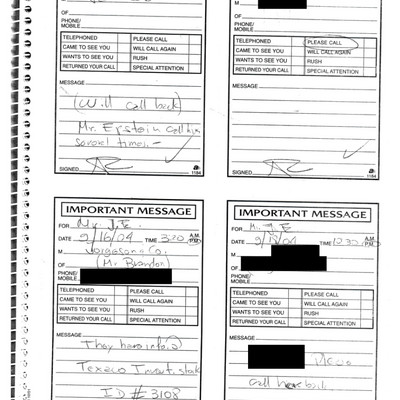 M
OF
PHONE/
MOBILE
TELEPHONED PLEASE CALL
CAME TO SEE YOU WILL CALL AGAIN
WANTS TO SEE YOU RUSH
RETURNED YOUR CALL SPECIAL ATTENTION
MESSAGE
(Will call back)
Mr. Epstein call him
several times.-
SIGNED 1184
M
OF
PHONE/
MOBILE
TELEPHONED PLEASE CALL
CAME TO SEE YOU WILL CALL AGAIN
WANTS TO SEE YOU RUSH
RETURNED YOUR CALL SPECIAL ATTENTION
MESSAGE
SIGNED 1184
IMPORTANT MESSAGE
FOR Mr J.E.
DATE 9/16/04 TIME 3:20 A.M. P.M.
M Jorgesson Co.
OF (Mr Brandon)
PHONE/
MOBILE
TELEPHONED PLEASE CALL
CAME TO SEE YOU WILL CALL AGAIN
WANTS TO SEE YOU RUSH
RETURNED YOUR CALL SPECIAL ATTENTION
MESSAGE
They have info.
Texaco Invest.
ID # 3108
IMPORTANT MESSAGE
FOR M. J.E
DATE TIME 12:30 A.M. P.M.
M
OF
PHONE/
MOBILE
TELEPHONED PLEASE CALL
CAME TO SEE YOU WILL CALL AGAIN
WANTS TO SEE YOU RUSH
RETURNED YOUR CALL SPECIAL ATTENTION
MESSAGE
Please
call her back